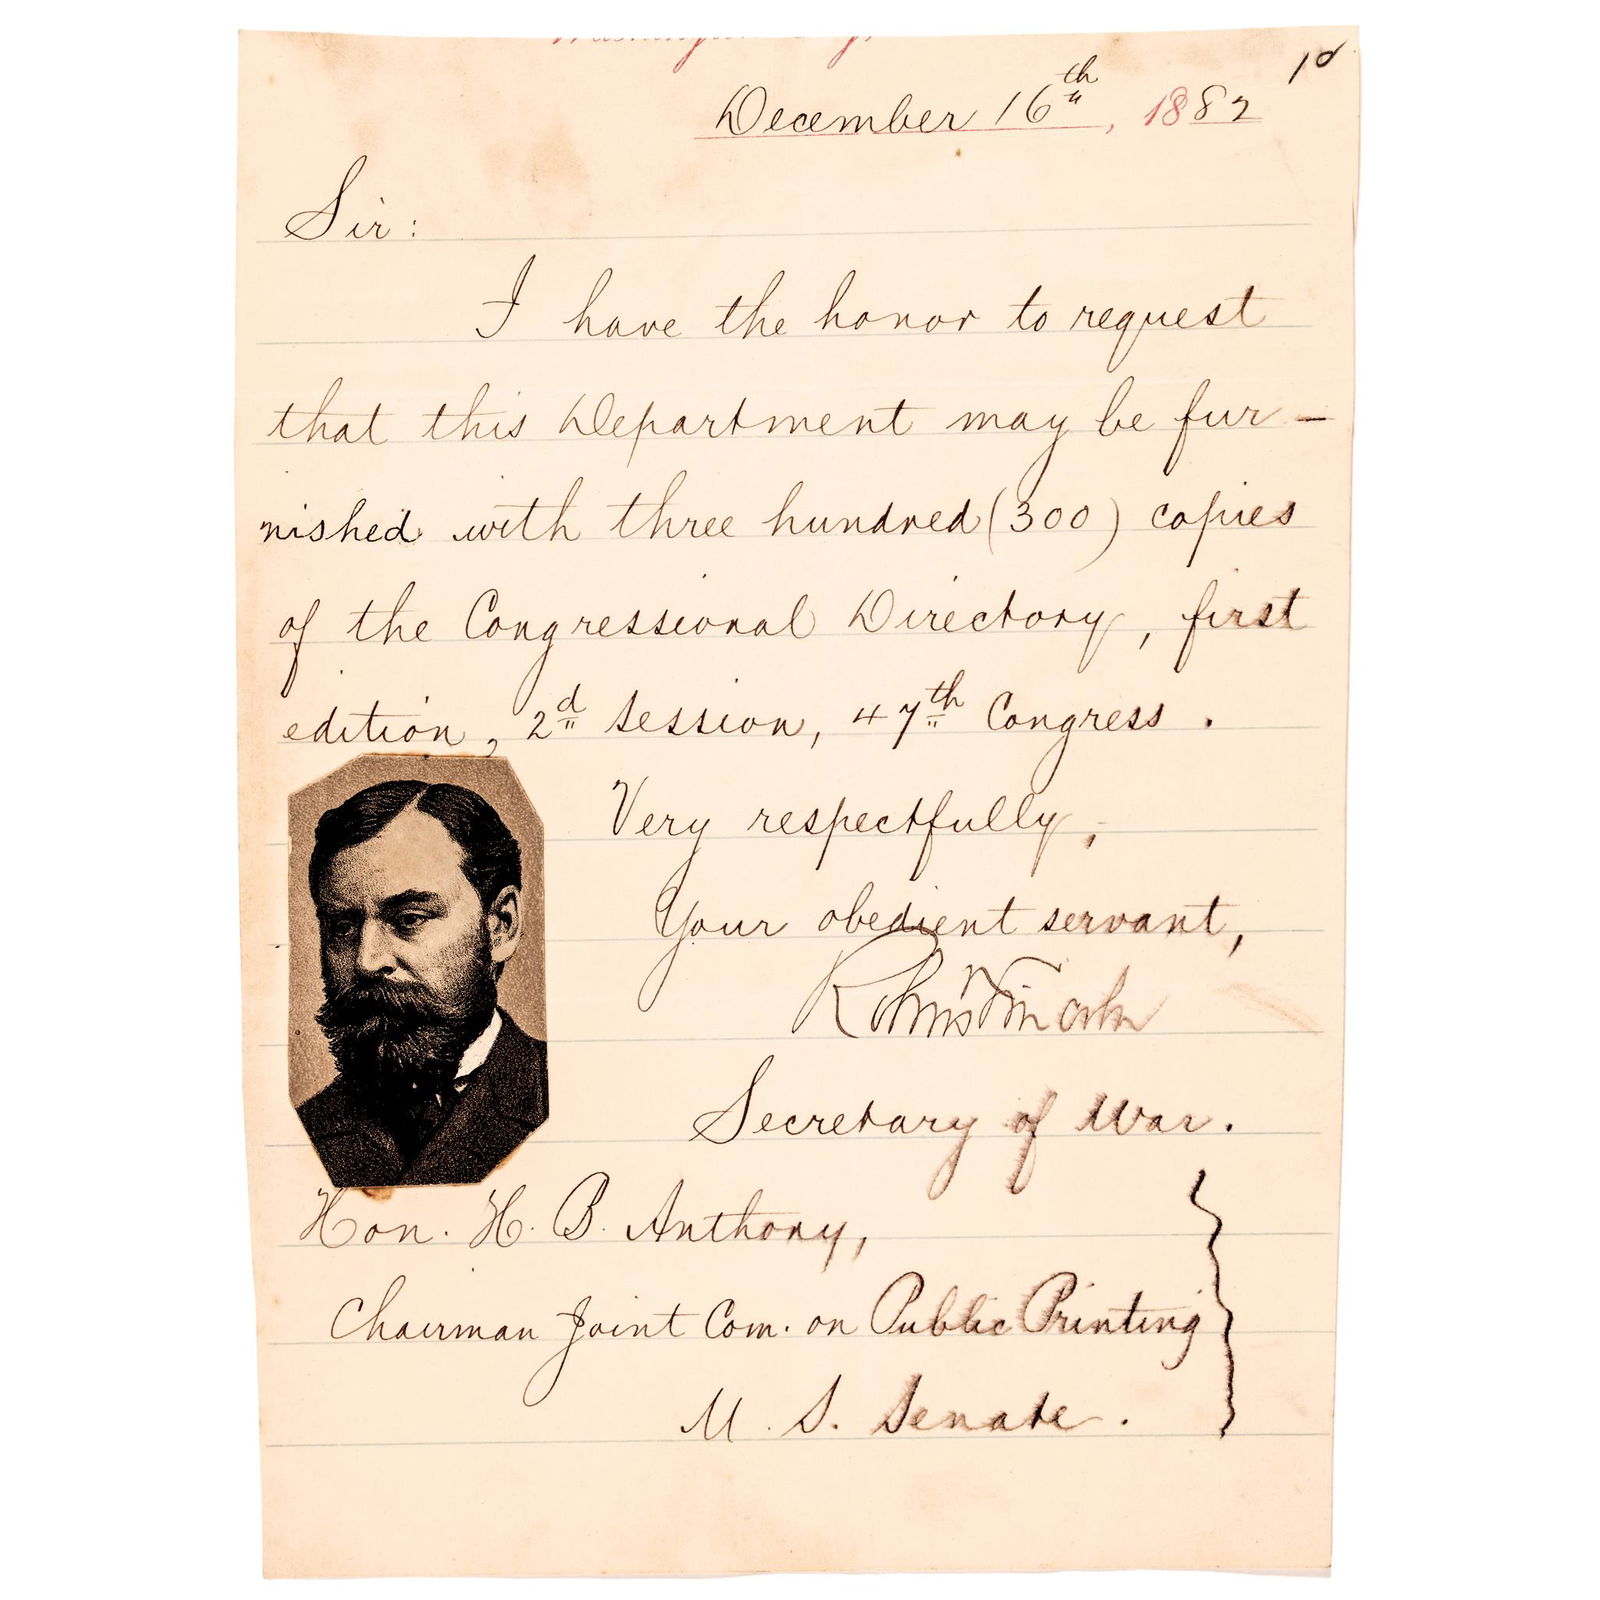 December 16th, 1882
Sir:
I have the honor to request
that this Department may be fur-
nished with three hundred (300) copies
of the Congressional Directory, first
edition, 2d session, 47th Congress.
Very respectfully,
Your obedient servant,
Robt T Lincoln
Secretary of War.
Hon. H. B. Anthony,
Chairman Joint Com. on Public Printing
U. S. Senate.